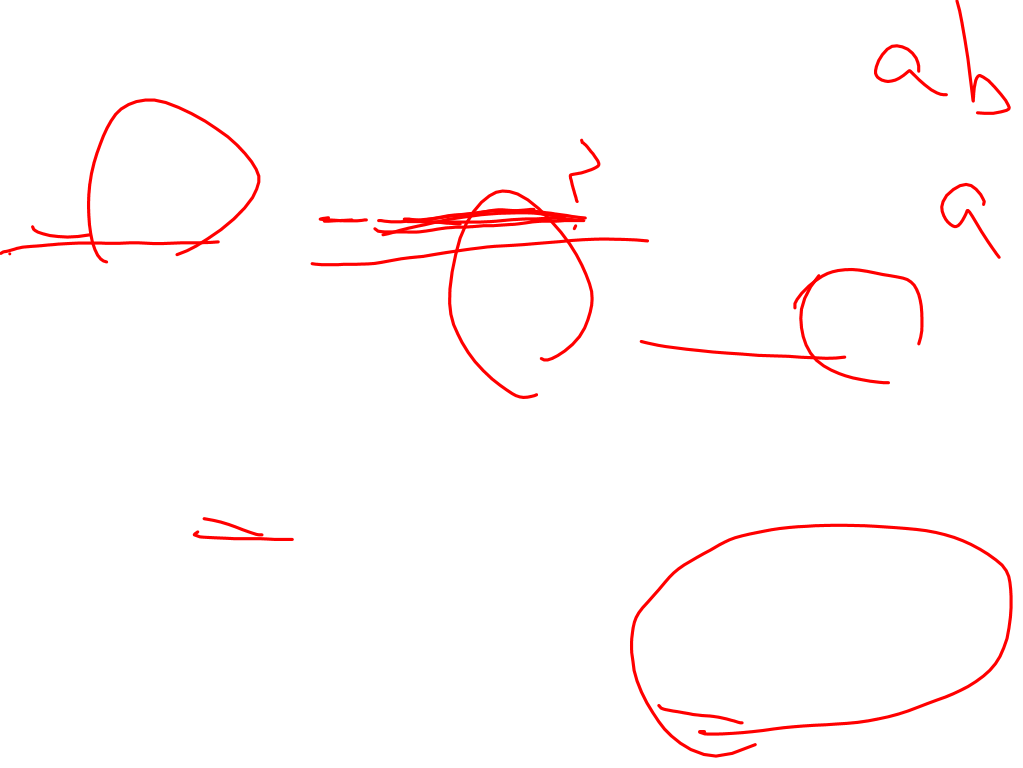 ab
?
a